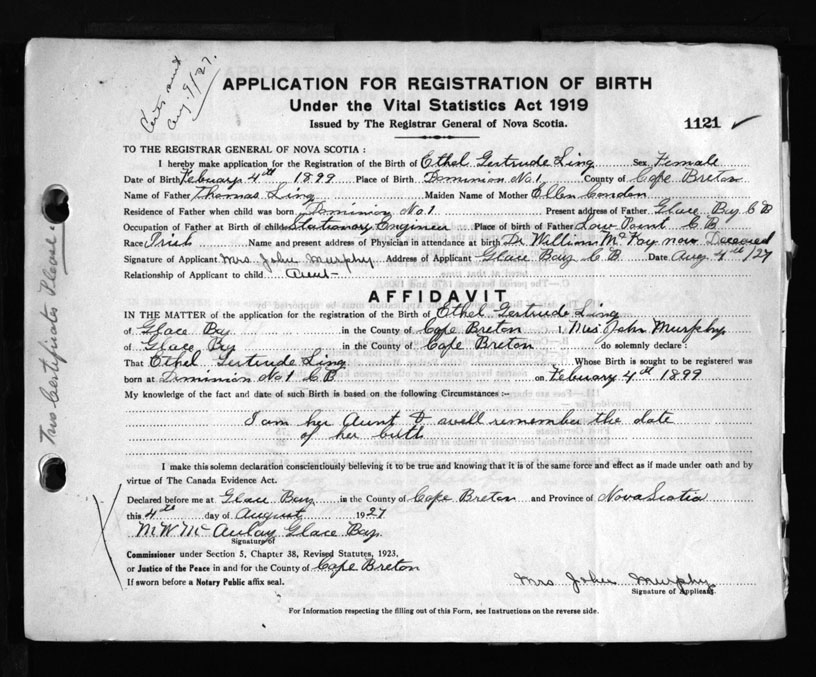 Certs sent
Aug. 9/27.
APPLICATION FOR REGISTRATION OF BIRTH
Under the Vital Statistics Act 1919
Issued by The Registrar General of Nova Scotia.
1121 ✓
TO THE REGISTRAR GENERAL OF NOVA SCOTIA :
I hereby make application for the Registration of the Birth of Ethel Gertrude Ling Sex Female
Date of Birth Febuary 4th 1899 Place of Birth Dominion No. 1 County of Cape Breton
Name of Father Thomas Ling Maiden Name of Mother Ellen Condon
Residence of Father when child was born Dominion No 1. Present address of Father Glace Bay C B
Occupation of Father at Birth of child Stationary Engineer Place of birth of Father Low Point C. B.
Race Irish Name and present address of Physician in attendance at birth Dr. William McKay now Deceased
Signature of Applicant Mrs. John Murphy Address of Applicant Glace Bay C B Date Aug. 4th/27
Relationship of Applicant to child Aunt
AFFIDAVIT
IN THE MATTER of the application for registration of the Birth of Ethel Gertrude Ling
of Glace Bay in the County of Cape Breton I, Mrs John Murphy
of Glace Bay in the County of Cape Breton do solemnly declare :
That Ethel Gertrude Ling Whose Birth is sought to be registered was
born at Dominion No 1 C B on Febuary 4th 1899
My knowledge of the fact and date of such Birth is based on the following Circumstances :-
I am her Aunt & well remember the date
of her birth
I make this solemn declaration conscientiously believing it to be true and knowing that it is of the same force and effect as if made under oath and by
virtue of The Canada Evidence Act.
Declared before me at Glace Bay in the County of Cape Breton and Province of Nova Scotia
this 4th day of August 1927
M W McAulay Glace Bay.
Signature of
Commissioner under Section 5, Chapter 38, Revised Statutes, 1923,
or Justice of the Peace in and for the County of Cape Breton
If sworn before a Notary Public affix seal.
Mrs John Murphy
Signature of Applicant.
For Information respecting the filling out of this Form, see Instructions on the reverse side.
Two Certificates Please.